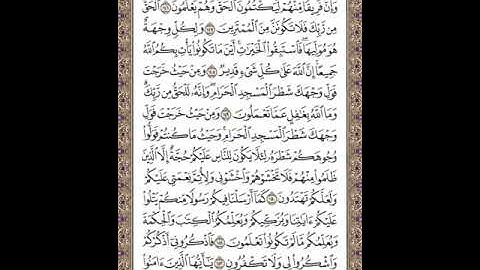 وَإِنَّ فَرِيقًا مِّنْهُمْ لَيَكْتُمُونَ الْحَقَّ وَهُمْ يَعْلَمُونَ ١٤٦ الْحَقُّ
مِن رَّبِّكَ فَلَا تَكُونَنَّ مِنَ الْمُمْتَرِينَ ١٤٧ وَلِكُلٍّ وِجْهَةٌ
هُوَ مُوَلِّيهَا فَاسْتَبِقُوا الْخَيْرَاتِ أَيْنَ مَا تَكُونُوا يَأْتِ بِكُمُ اللَّهُ
جَمِيعًا إِنَّ اللَّهَ عَلَىٰ كُلِّ شَيْءٍ قَدِيرٌ ١٤٨ وَمِنْ حَيْثُ خَرَجْتَ
فَوَلِّ وَجْهَكَ شَطْرَ الْمَسْجِدِ الْحَرَامِ وَإِنَّهُ لَلْحَقُّ مِن رَّبِّكَ
وَمَا اللَّهُ بِغَافِلٍ عَمَّا تَعْمَلُونَ ١٤٩ وَمِنْ حَيْثُ خَرَجْتَ فَوَلِّ
وَجْهَكَ شَطْرَ الْمَسْجِدِ الْحَرَامِ وَحَيْثُ مَا كُنتُمْ فَوَلُّوا
وُجُوهَكُمْ شَطْرَهُ لِئَلَّا يَكُونَ لِلنَّاسِ عَلَيْكُمْ حُجَّةٌ إِلَّا الَّذِينَ
ظَلَمُوا مِنْهُمْ فَلَا تَخْشَوْهُمْ وَاخْشَوْنِي وَلِأُتِمَّ نِعْمَتِي عَلَيْكُمْ
وَلَعَلَّكُمْ تَهْتَدُونَ ١٥٠ كَمَا أَرْسَلْنَا فِيكُمْ رَسُولًا مِّنكُمْ يَتْلُوا
عَلَيْكُمْ آيَاتِنَا وَيُزَكِّيكُمْ وَيُعَلِّمُكُمُ الْكِتَابَ وَالْحِكْمَةَ
وَيُعَلِّمُكُم مَّا لَمْ تَكُونُوا تَعْلَمُونَ ١٥١ فَاذْكُرُونِي أَذْكُرْكُمْ
وَاشْكُرُوا لِي وَلَا تَكْفُرُونِ ١٥٢ يَا أَيُّهَا الَّذِينَ آمَنُوا